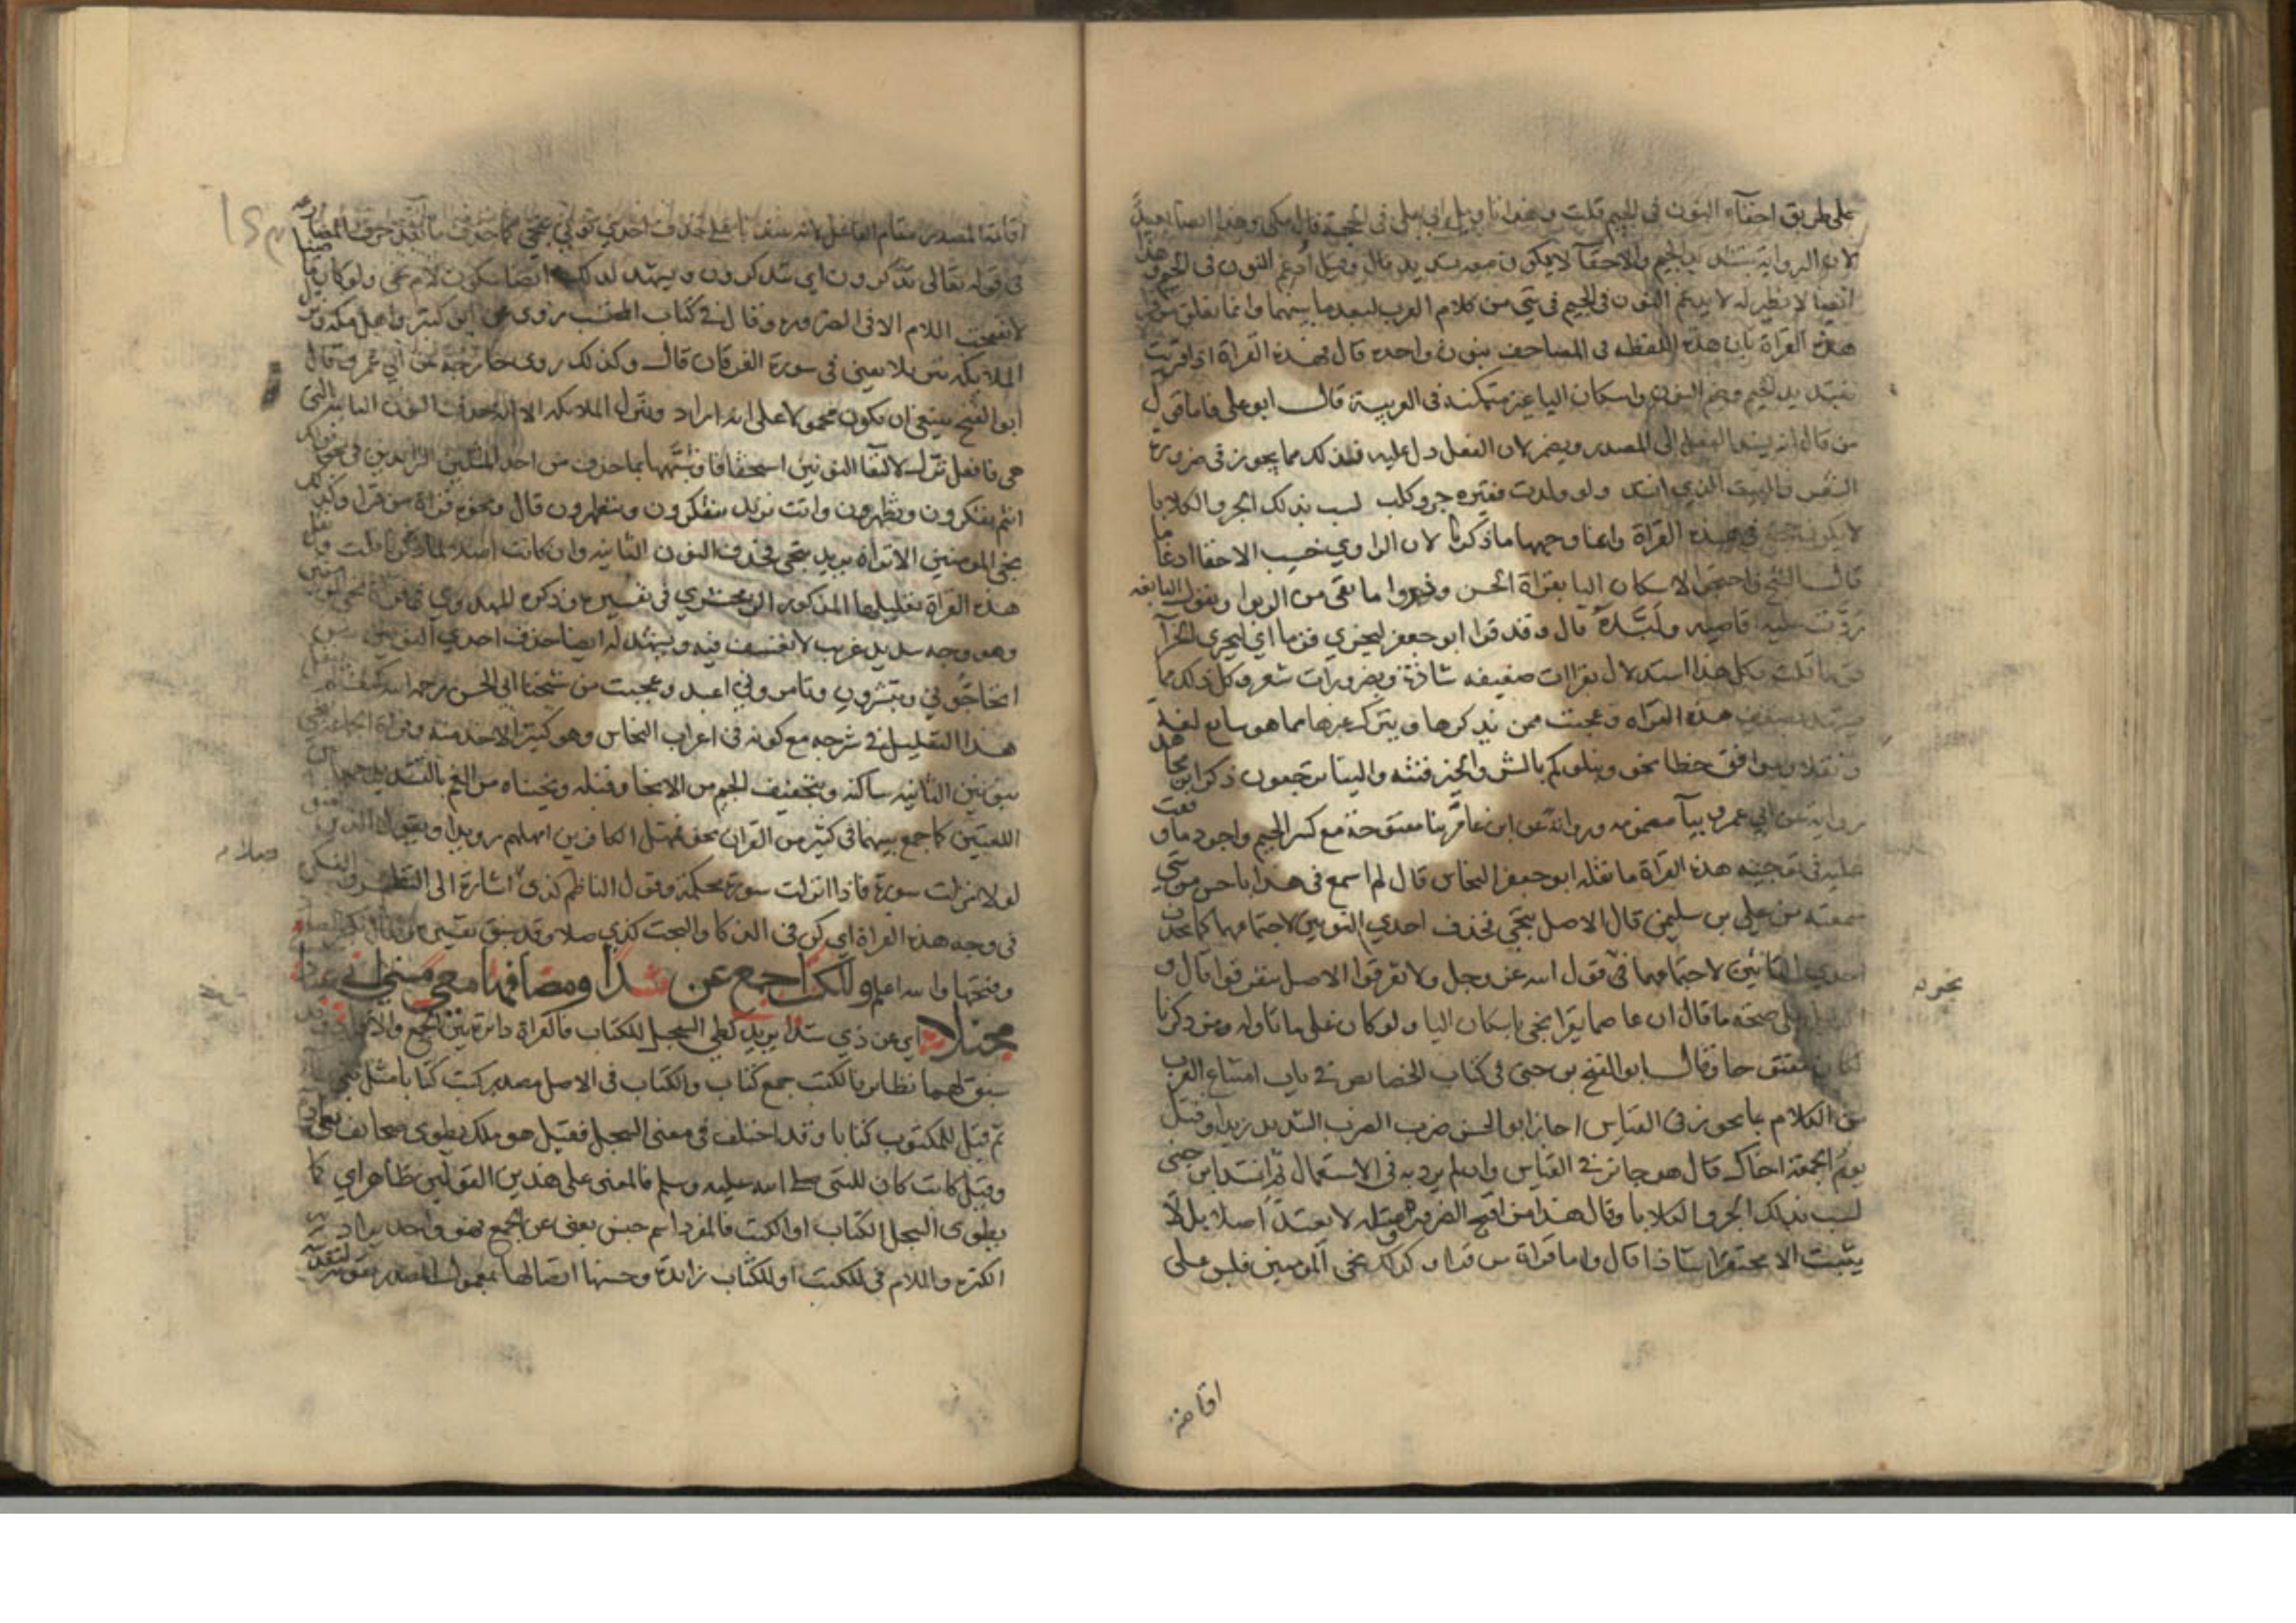 على طريق اخفاء النون في الجيم قلت و هذا تاويل ابي علي في الحجة قال مكي وهذا ايضا بعيد
لان الرواية بتشديد الجيم والاخفآ لا يكون معه تشديد قال وقيل ادغم النون في الجيم وهذا
ايضا لا نظير له لا يدغم النون في الجيم في شي من كلام العرب لبعد ما بينهما وانما تعلق من قرا
هذه القراة بان هذه اللفظه في المصاحف بنون واحده قال فهذه القراة اذا قريت
بتشديد الجيم وضم النون واسكان اليا غير متمكنه في العربية قال ابو علي فاما قول
من قال انه يسند الفعل الى المصدر ويضمر لان الفعل دل عليه فذلك مما يجوز في ضرورة
الشعر والبيت الذي انشد ولو ولدت قفيره جرو كلب لسب بذلك الجرو الكلابا
لا يكون حجة في هذه القراة وانما وجهها ما ذكرنا لان الراوي حسب الاخفا ادغاما
قال الشيخ واحتجوا لاسكان اليا بقراة الحسن وذروا ما بقي من الربوا وبقول النابغه
ردت عليه اقاصيه ولبده قال وقد قرا ابو جعفر ليجزي قوما اي ليجزى الجزآ
قوما قلت وكل هذا استدلال بقراات ضعيفه شاذة وبضرورات شعر وكل ذلك مما
يشهد بضعف هذه القراه وعجبت ممن يذكرها ويترك غيرها مما هو سايغ لغة
ونقلا وموافق خطا نحو ونبلوكم بالشر والخير فتنة والينا ترجعون ذكر ابن مجاهد
رواية عن ابي عمرو بيآ مضمومه ورواية عن ابن عامر بتا مفتوحة مع كسر الجيم واجود ما وقعت
عليه في توجيه هذه القراة ما نقله ابو جعفر النحاس قال لم اسمع في هذا باحسن من شي
سمعته من علي بن سليمن قال الاصل ننجي فحذف احدي النونين لاجتماعهما كما يحذف
احدي التائين لاجتماعهما في قول الله عز وجل ولا تفرقوا الاصل تتفرقوا قال و
الدليل على صحة ما قال ان عاصما يقرا نجي باسكان اليا ولو كان على ما تاوله من ذكرنا
لكان مفتوحا وقال ابو الفتح بن جني في كتاب الخصايص في باب امتناع العرب
من الكلام بما يجوز في القياس اجاز ابو الحسن ضرب الضرب الشديد زيدا وقتل
يوم الجمعة اخاك قال هو جائز في القياس وان لم يرد به في الاستعمال ثم انشد ابن جني
لسب بذلك الجرو الكلابا وقال هذا من اقبح الضروره ومثله لا يعتد اصلا بل لا
يثبت الا محتقرا شاذا قال واما قراة من قرا وكذلك نجي المومنين فليس على
نحونا
اقامة
اقامة المصدر مقام الفاعل لانه عندنا على حذف احدي نوني ننجي كما حذف ما بعد حرف المضارعة
في قوله تعالى تذكرون اي تتذكرون ويشهد لذلك ايضا سكون لام نجي ولو كان ماضيا
لانفتحت اللام الا في الضروره وقال في كتاب المحتسب روى عن ابن كثير واهل مكه ونزل
الملايكه تنزيلا يعني في سورة الفرقان قال وكذلك روى خارجة عن ابي عمرو قال
ابو الفتح ينبغي ان يكون محمولا على انه اراد وننزل الملايكه الا انه حذف النون الثانيه التي
هي فا فعل نزل لالتقا النونين استخفافا وشبهها بما حذف من احد المثلين الزايدين في نحو قولك
انتم تفكرون وتطهرون وانت تريد تتفكرون وتتطهرون قال ونحوه قراة من قرا وكذلك
نجي المومنين الا تراه يريد ننجي فحذف النون الثانيه وان كانت اصلا لما ذكرنا قلت وقيل
هذه القراة بتعليلها المذكور الزمخشري في تفسيره وذكره المهدوي
وهو وجه سديد غريب لا تعسف فيه ويشهد له ايضا حذف احدي النونين من
اتحاجوني وتبشرون وتامروني اعبد وعجبت من شيخنا ابي الحسن رحمه الله كيف لم ينقل
هذا التعليل في شرحه مع كونه في اعراب النحاس وهو كثير الاخذ منه وقراة الجماعة ننجي
بنونين الثانيه ساكنه وبتخفيف الجيم من الانجا وقبله ونجيناه من الغم بالتشديد جمعا بين
اللغتين كما جمع بينهما في كثير من القران نحو فمهل الكافرين امهلهم رويدا ويقول الذين امنوا
لولا نزلت سورة فاذا انزلت سورة محكمة وقول الناظم كذى اشارة الى النظير والفكر
في وجه هذه القراة اي كن في الذكا والبحث كذي صلا وقد سبق تفسير
وفتحها والله اعلم وللكتب اجمع عن شذا ومضافها معي مسني اني عبادي
مجتلا اي عن ذي شذا يريد كطي السجل للكتاب فالقراة دائرة بين الجمع والافراد وقد
سبق لهما نظاير فالكتب جمع كتاب والكتاب في الاصل مصدر كتب كتابا مثل بني
ثم قيل للمكتوب كتابا وقد اختلف في معنى السجل فقيل هو ملك يطوى صحايف بني ادم
وقيل كاتب كان للنبي صلى الله عليه وسلم فالمعنى على هذين القولين ظاهر اي كما
يطوى السجل الكتاب او الكتب فالمفرد اسم جنس يغني عن الجمع فهو واحد يراد به
الكثره واللام في للكتب او للكتاب زائدة وحسنها اتصالها بمعمول المصدر